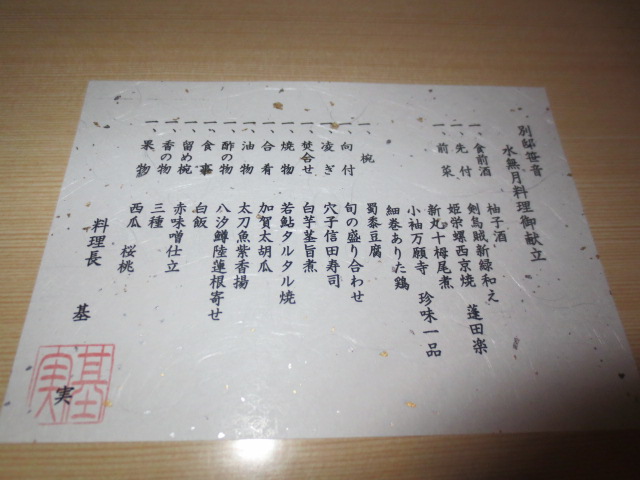 別邸笹音
水無月料理御献立
一、食前酒 柚子酒
一、先付 剣烏賊新緑和え
一、前菜 姫栄螺西京焼 蓬田楽
新丸十栂尾煮 珍味一品
小袖万願寺
細巻ありた鶏
一、椀 蜀黍豆腐
一、向付 旬の盛り合わせ
一、凌ぎ 穴子信田寿司
一、焚合せ 白芋茎旨煮
一、焼物 若鮎タルタル焼
一、合肴 加賀太胡瓜
一、油物 太刀魚紫香揚
一、酢の物 八汐鱒陸蓮根寄せ
一、食事 白飯
一、留め椀 赤味噌仕立
一、香の物 三種
一、果物 西瓜 桜桃
料理長 基 実
基実